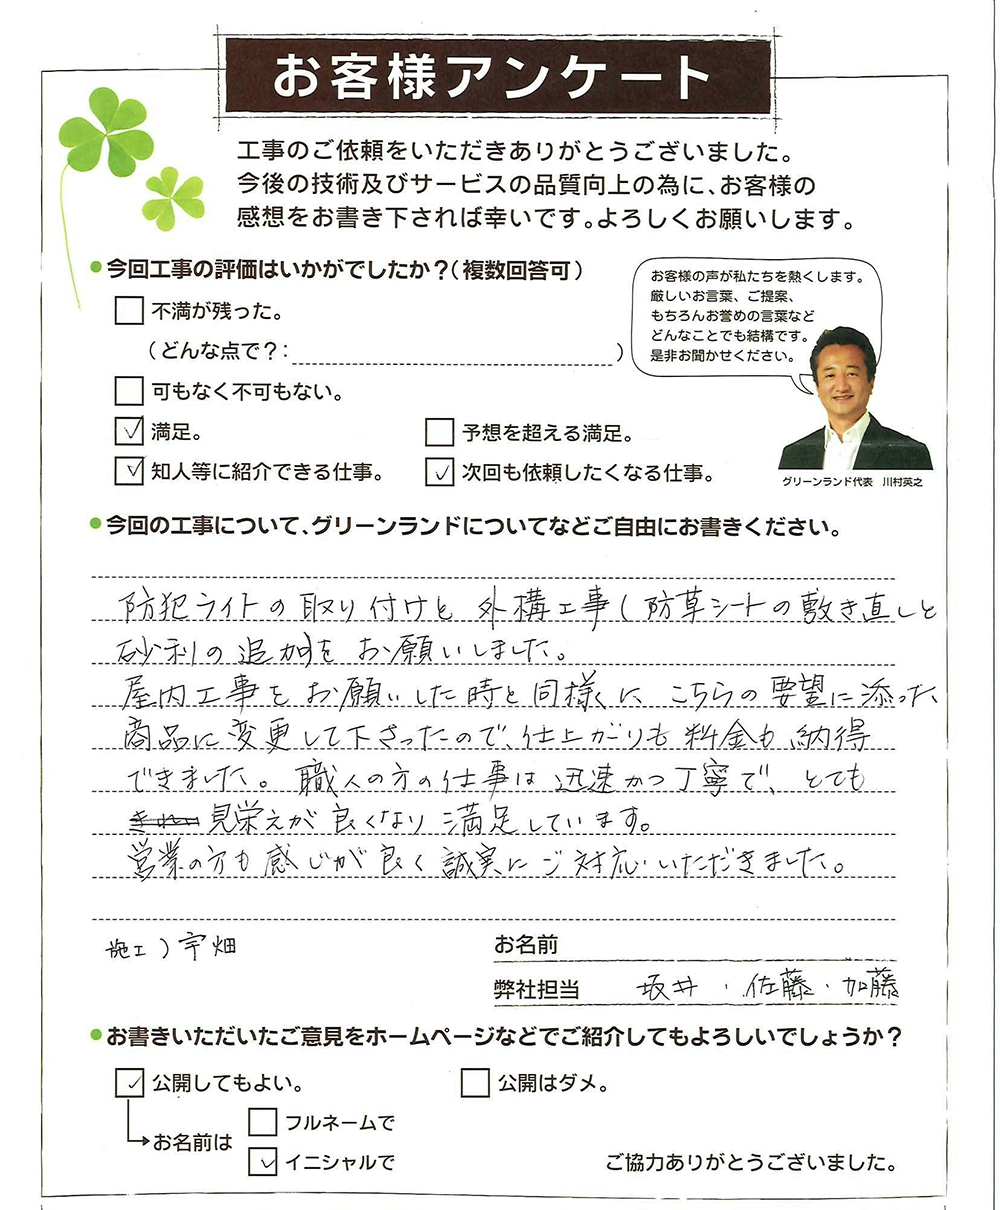 お客様アンケート
工事のご依頼をいただきありがとうございました。
今後の技術及びサービスの品質向上の為に、お客様の
感想をお書き下されば幸いです。よろしくお願いします。
●今回工事の評価はいかがでしたか?(複数回答可)
不満が残った。
(どんな点で?: )
可もなく不可もない。
✓ 満足。
予想を超える満足。
✓ 知人等に紹介できる仕事。
✓ 次回も依頼したくなる仕事。
お客様の声が私たちを熱くします。
厳しいお言葉、ご提案、
もちろんお誉めの言葉など
どんなことでも結構です。
是非お聞かせください。
グリーンランド代表 川村英之
●今回の工事について、グリーンランドについてなどご自由にお書きください。
防犯ライトの取り付けと外構工事(防草シートの敷き直しと
砂利の追加)をお願いしました。
屋内工事をお願いした時と同様に、こちらの要望に添った
商品に変更して下さったので、仕上がりも料金も納得
できました。職人の方の仕事は迅速かつ丁寧で、とても
見栄えが良くなり満足しています。
営業の方も感じが良く誠実にご対応いただきました。
施工)宇畑
お名前
弊社担当 坂井・佐藤・加藤
●お書きいただいたご意見をホームページなどでご紹介してもよろしいでしょうか?
✓ 公開してもよい。
公開はダメ。
お名前は
フルネームで
✓ イニシャルで
ご協力ありがとうございました。